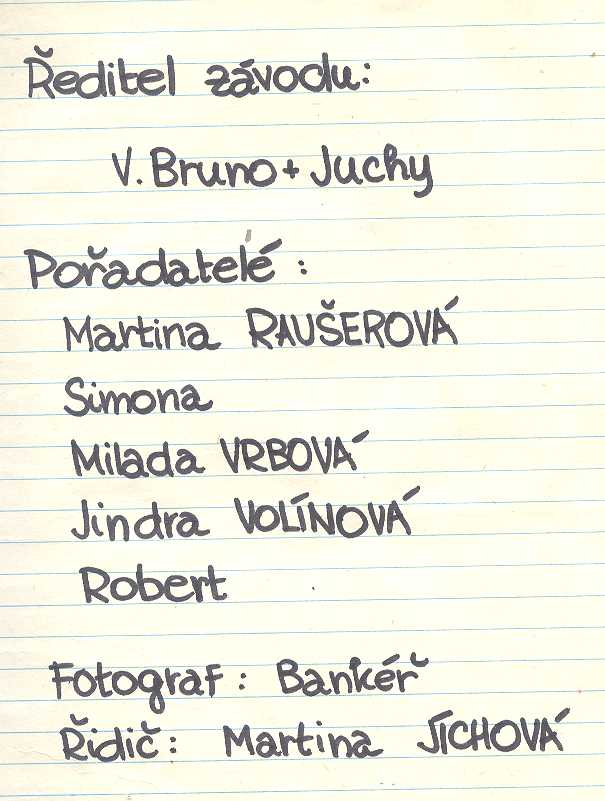 Ředitel závodu:
V. Bruno + Juchy
Pořadatelé:
Martina RAUŠEROVÁ
Simona
Milada VRBOVÁ
Jindra VOLÍNOVÁ
Robert
Fotograf: Bankéř
Řidič: Martina JÍCHOVÁ